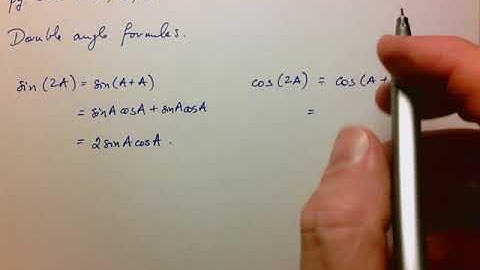 Double angle formulas.
sin(2A) = sin(A+A)
= sinA cosA + sinA cosA
= 2 sinA cosA.
cos(2A) = cos(A+
=